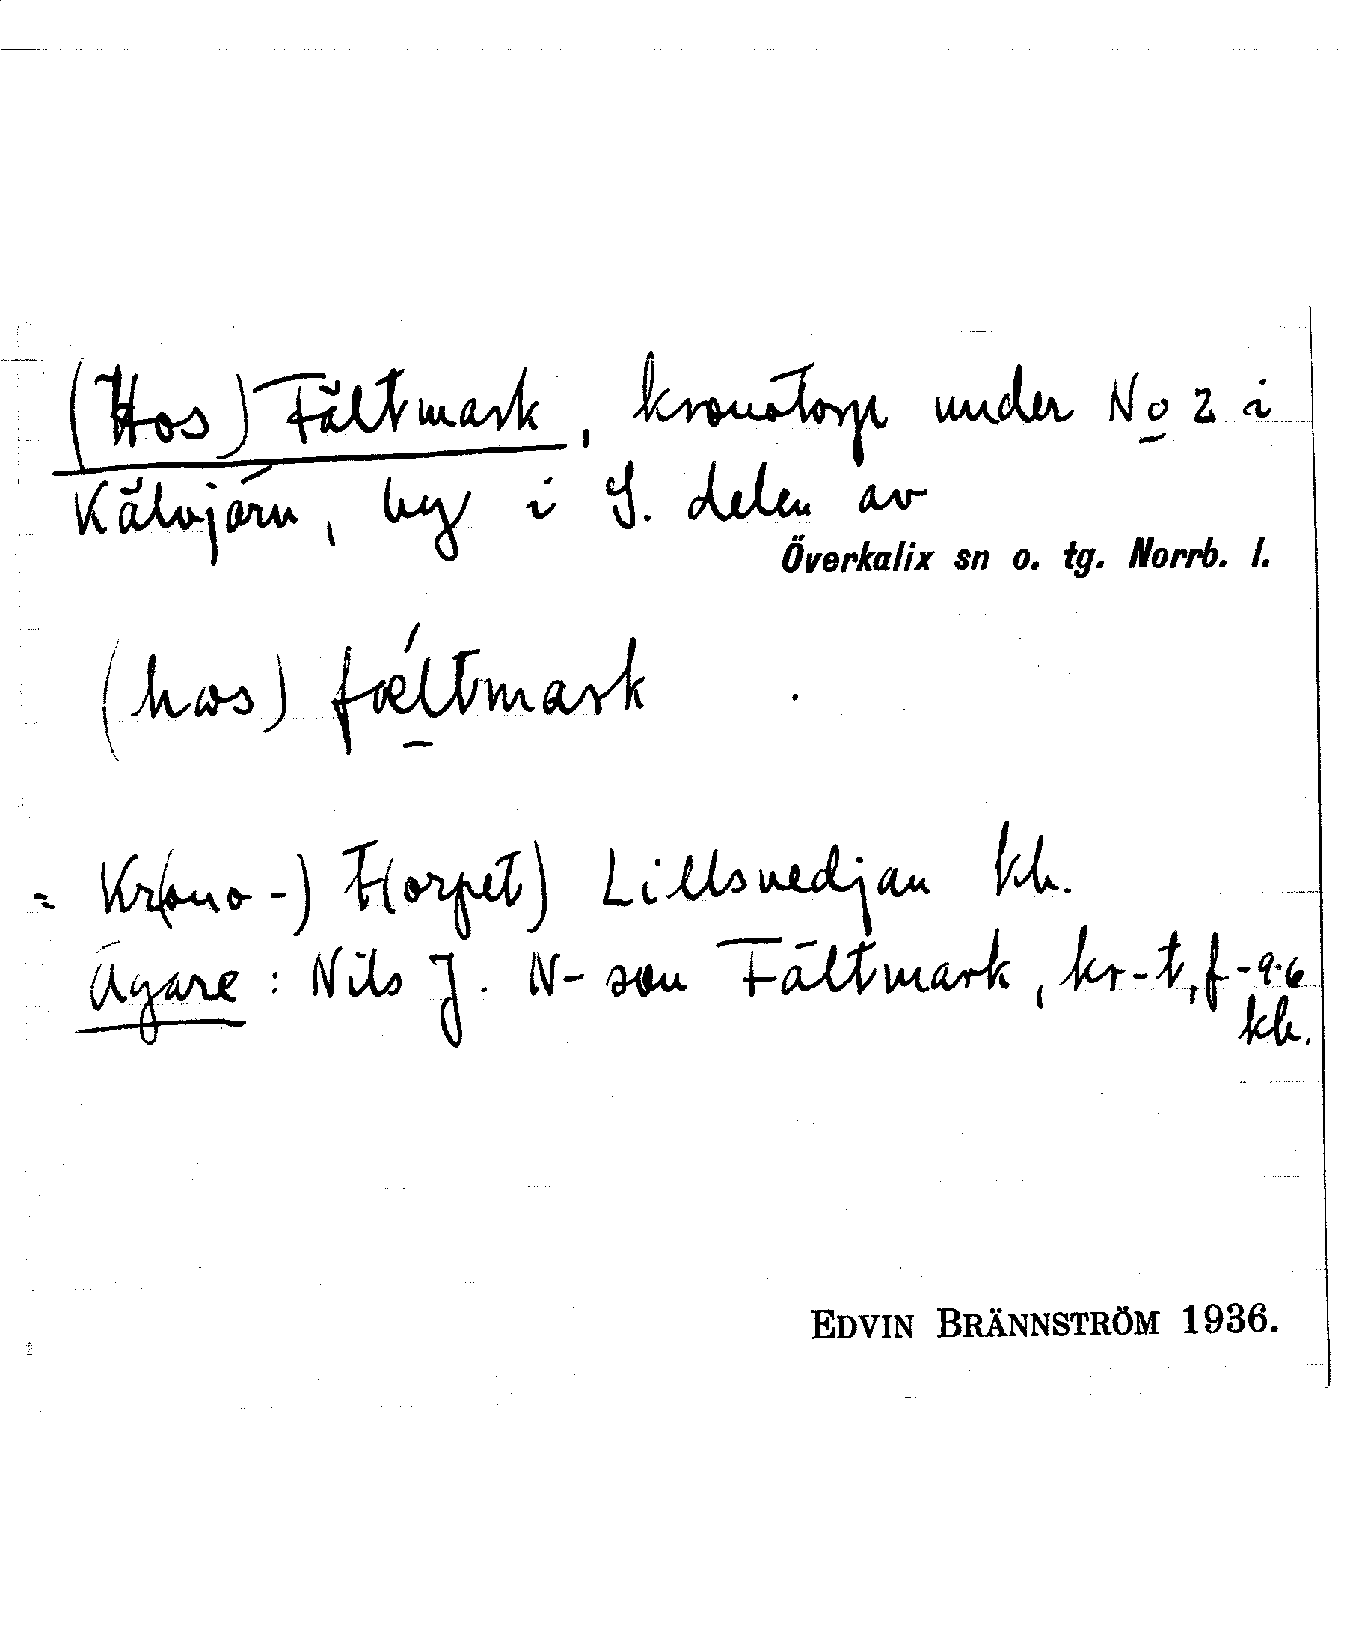 (Hos) Fältmark, kronotorp under No 2 i
Kälvjärn, by i S. delen av
Överkalix sn o. tg. Norrb. l.
(hɷs) fæ̀ltmark
= Kr(ono-) T(orpet) Lillsvedjan kb.
Ägare: Nils J. N-son Fältmark, kr-t, f-96
kb.
EDVIN BRÄNNSTRÖM 1936.